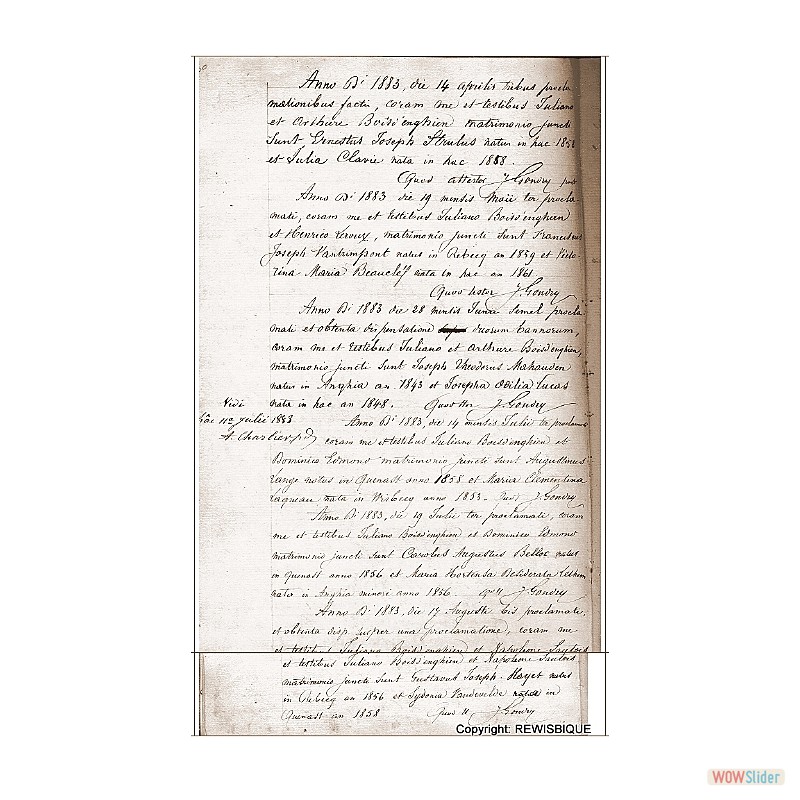 Anno Di 1883, die 14 aprilis tribus procla
mationibus factis, coram me et testibus Juliano
et Arthure Boisd'enghien matrimonio juncti
Sunt, Ernestus Joseph Strubus natus in hac 1858
et Julia Clavie nata in hac 1858.
Quod attestor J Gondry
Anno Di 1883 die 19 mensis Maii ter procla-
mati, coram me et testibus Juliano Boisd'enghien
et Henrico Leroux, matrimonio juncti sunt Franciscus
Joseph Vantrimpont natus in Rebecq an 1859 et Victo
rina Maria Beauclef nata in hac an 1861.
Quod testor J. Gondry
Anno Di 1883 die 28 mensis Junii semel procla
mati et obtenta dispensatione duorum bannorum,
coram me et testibus Juliano et Arthure Boisd'enghien,
matrimonio juncti sunt Joseph Theodorus Mahauden
natus in Anghia an 1843 et Josepha Odilia Lucas
nata in hac an 1848. J Gondry
Vidi
hâc 11a Julii 1883
A. Charlier
Anno Di 1883, die 14 mensis Julii ter proclamati
coram me et testibus Juliano Boisd'enghien et
Dominico Edmond matrimonio juncti sunt Augustinus
Lange natus in Quenast anno 1858 et Maria Clementina
Laqueau nata in Wisbecq anno 1853. Quod J. Gondry
Anno Di 1883, die 19 Julii ter proclamati, coram
me et testibus Juliano Boisd'enghien et Dominico Edmond
matrimonio juncti sunt Carolus Augustus Belloc natus
in Quenast anno 1856 et Maria Hortensa Desiderata
nata in Anghia minori anno 1856. J Gondry
Anno Di 1883, die 17 Augusti bis proclamati,
et obtenta disp. super una proclamatione, coram me
et testibus Juliano Boisd'enghien et Napoleone
et testibus Juliano Boisd'enghien et Napoleone
matrimonio juncti sunt Gustavus Joseph Hayet natus
in Rebecq an 1856 et Sydonia Vandevelde nata in
Quenast an 1858 Quod J. Gondry
Copyright: REWISBIQUE
WOWSlider